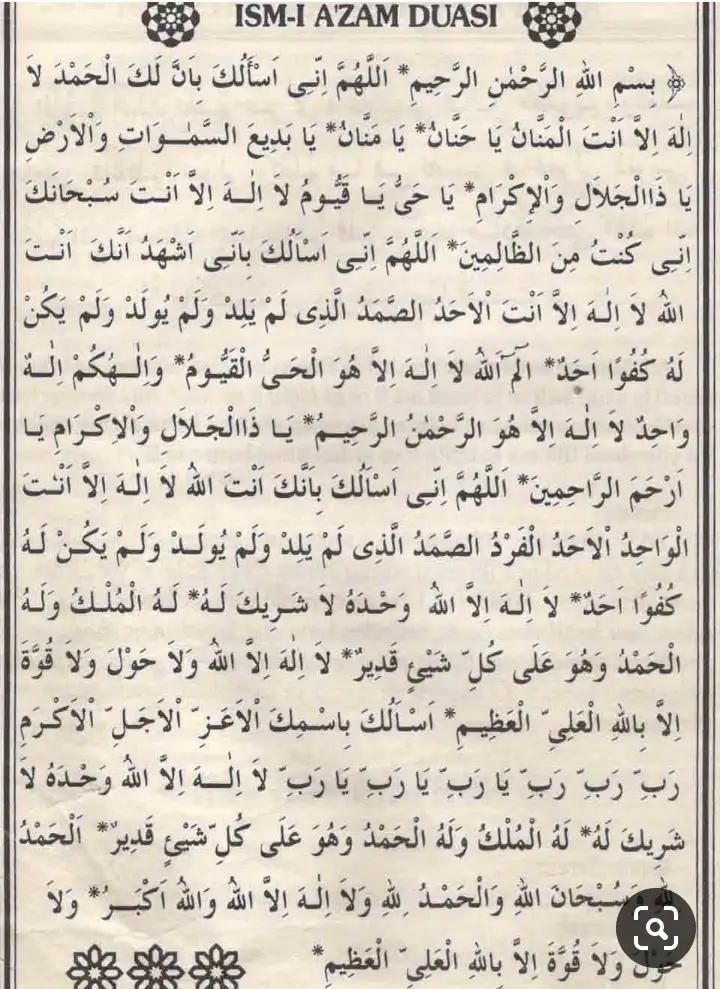 ISM-I A'ZAM DUASI
بِسْمِ اللهِ الرَّحْمٰنِ الرَّحِيمِ* اَللَّهُمَّ اِنِّى اَسْأَلُكَ بِاَنَّ لَكَ الْحَمْدَ لاَ
اِلٰهَ اِلاَّ اَنْتَ الْمَنَّانُ يَا حَنَّانُ* يَا مَنَّانُ* يَا بَدِيعَ السَّمٰوَاتِ وَاْلاَرْضِ
يَا ذَاالْجَلاَلِ وَاْلاِكْرَامِ* يَا حَىُّ يَا قَيُّومُ لاَ اِلٰهَ اِلاَّ اَنْتَ سُبْحَانَكَ
اِنِّى كُنْتُ مِنَ الظَّالِمِينَ* اَللَّهُمَّ اِنِّى اَسْاَلُكَ بِاَنِّى اَشْهَدُ اَنَّكَ اَنْتَ
اللهُ لاَ اِلٰهَ اِلاَّ اَنْتَ اْلاَحَدُ الصَّمَدُ الَّذِى لَمْ يَلِدْ وَلَمْ يُولَدْ وَلَمْ يَكُنْ
لَهُ كُفُوًا اَحَدٌ* الٓمٓ اَللهُ لاَ اِلٰهَ اِلاَّ هُوَ الْحَىُّ الْقَيُّومُ* وَاِلٰهُكُمْ اِلٰهٌ
وَاحِدٌ لاَ اِلٰهَ اِلاَّ هُوَ الرَّحْمٰنُ الرَّحِيمُ* يَا ذَاالْجَلاَلِ وَاْلاِكْرَامِ يَا
اَرْحَمَ الرَّاحِمِينَ* اَللَّهُمَّ اِنِّى اَسْاَلُكَ بِاَنَّكَ اَنْتَ اللهُ لاَ اِلٰهَ اِلاَّ اَنْتَ
الْوَاحِدُ اْلاَحَدُ الْفَرْدُ الصَّمَدُ الَّذِى لَمْ يَلِدْ وَلَمْ يُولَدْ وَلَمْ يَكُنْ لَهُ
كُفُوًا اَحَدٌ* لاَ اِلٰهَ اِلاَّ اللهُ وَحْدَهُ لاَ شَرِيكَ لَهُ* لَهُ الْمُلْكُ وَلَهُ
الْحَمْدُ وَهُوَ عَلَى كُلِّ شَيْئٍ قَدِيرٌ* لاَ اِلٰهَ اِلاَّ اللهُ وَلاَ حَوْلَ وَلاَ قُوَّةَ
اِلاَّ بِاللهِ الْعَلِىِّ الْعَظِيمِ* اَسْاَلُكَ بِاسْمِكَ اْلاَعَزِّ اْلاَجَلِّ اْلاَكْرَمِ
رَبِّ رَبِّ رَبِّ يَا رَبِّ يَا رَبِّ يَا رَبِّ لاَ اِلٰهَ اِلاَّ اللهُ وَحْدَهُ لاَ
شَرِيكَ لَهُ* لَهُ الْمُلْكُ وَلَهُ الْحَمْدُ وَهُوَ عَلَى كُلِّ شَيْئٍ قَدِيرٌ* اَلْحَمْدُ
لِلّٰهِ وَسُبْحَانَ اللهِ وَالْحَمْدُ لِلّٰهِ وَلاَ اِلٰهَ اِلاَّ اللهُ وَاللهُ اَكْبَرُ* وَلاَ
حَوْلَ وَلاَ قُوَّةَ اِلاَّ بِاللهِ الْعَلِىِّ الْعَظِيمِ*